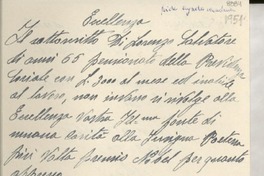 1951
Eccellenza
Il sottoscritto Di Lorenzo Salvatore
di anni 65 pensionato della Previdenza
Sociale con L. 300 al mese ed inabile
al lavoro, non invano si rivolge alla
Eccellenza Vostra Ill. ma fonte di
umana carità alla Insigne Poetessa
Volta Premio Nobel per quanto
appresso